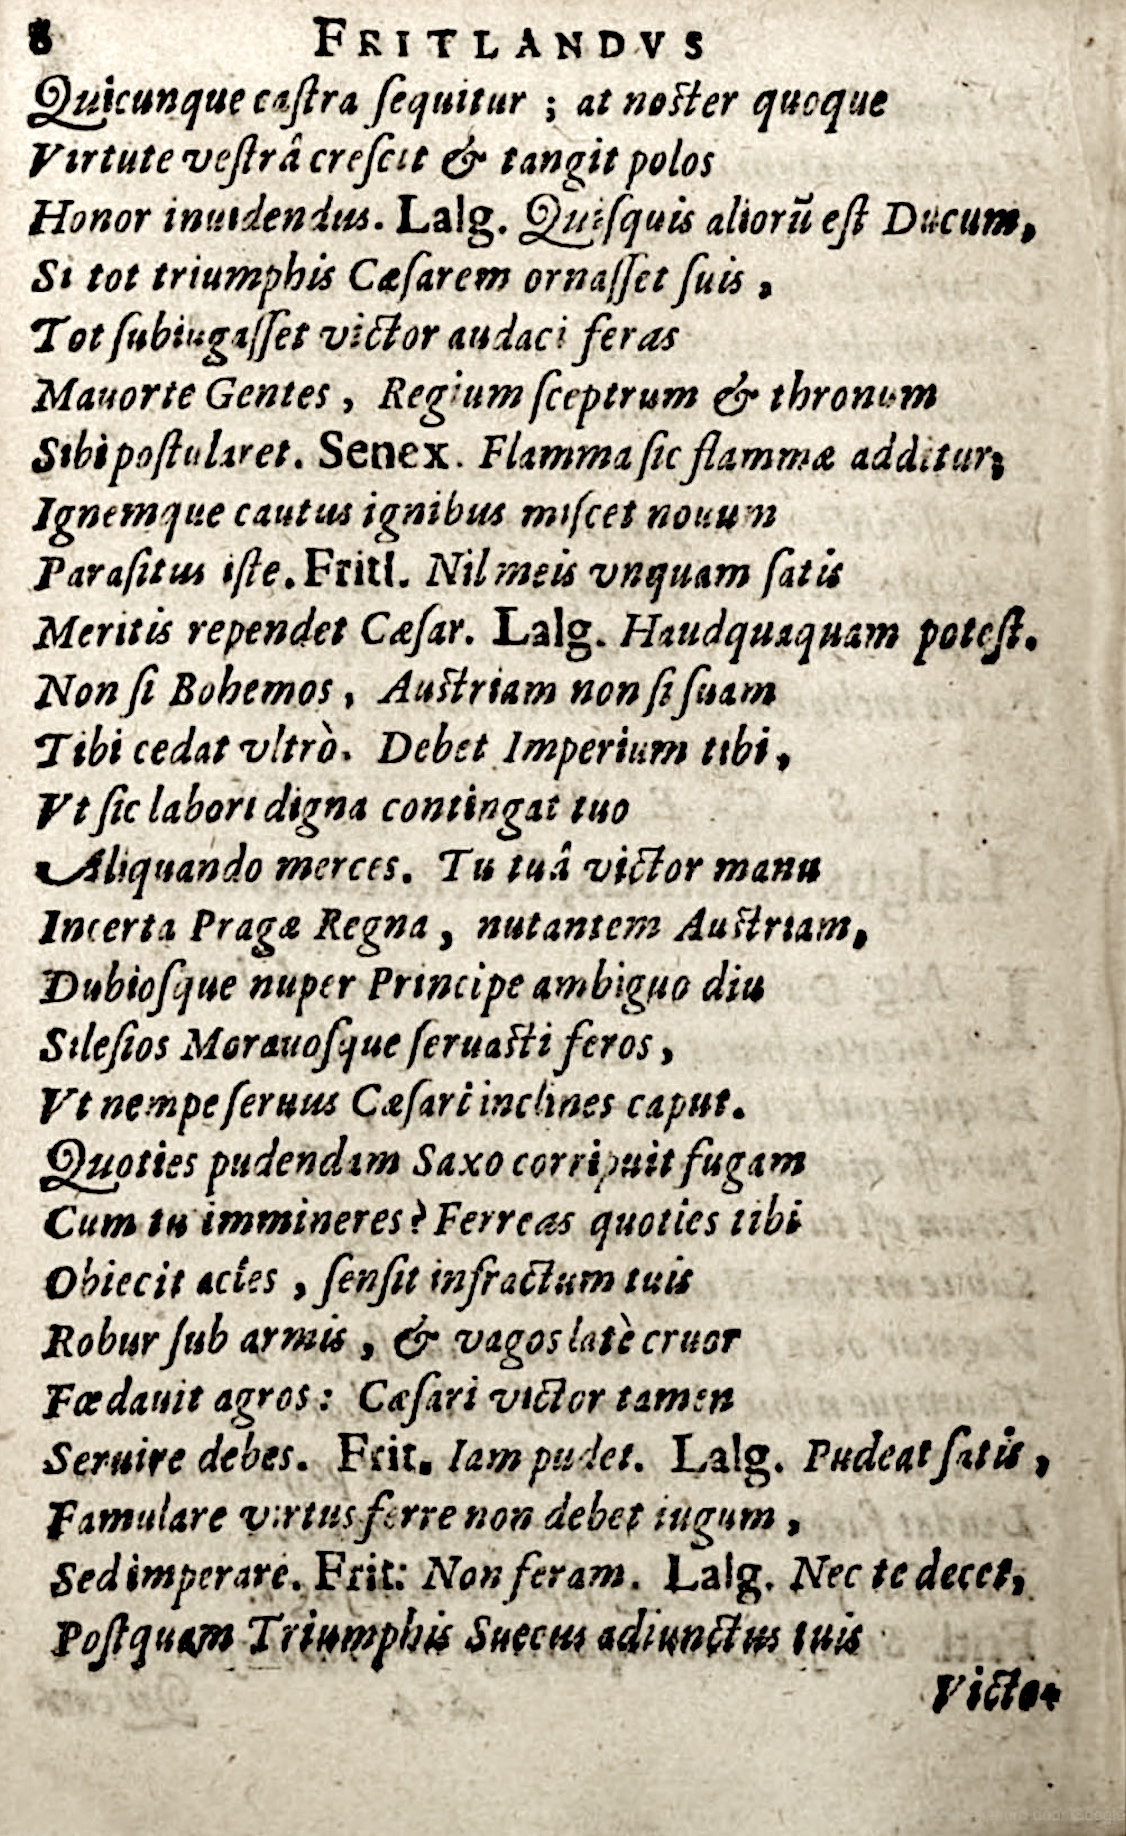 8 FRITLANDVS
Quicunque caſtra ſequitur ; at noſter quoque
Virtute veſtrâ creſcit & tangit polos
Honor inuidendus. Lalg. Quiſquis aliorū eſt Ducum,
Si tot triumphis Cæſarem ornaſſet ſuis ,
Tot ſubiugaſſet victor audaci feras
Mauorte Gentes , Regium ſceptrum & thronum
Sibi poſtularet. Senex. Flamma ſic flammæ additur;
Ignemque cautus ignibus miſcet nouum
Paraſitus iſte. Fritl. Nil meis vnquam ſatis
Meritis rependet Cæſar. Lalg. Haudquaquam poteſt.
Non ſi Bohemos , Auſtriam non ſi ſuam
Tibi cedat vltrò. Debet Imperium tibi ,
Vt ſic labori digna contingat tuo
Aliquando merces. Tu tuâ victor manu
Incerta Pragæ Regna , nutantem Auſtriam,
Dubioſque nuper Principe ambiguo diu
Sileſios Morauoſque ſeruaſti feros ,
Vt nempe ſeruus Cæſari inclines caput.
Quoties pudendam Saxo corripuit fugam
Cum tu immineres? Ferreas quoties tibi
Obiecit acies , ſenſit infractum tuis
Robur ſub armis , & vagos latè cruor
Fœdauit agros : Cæſari victor tamen
Seruire debes. Frit. Iam pudet. Lalg. Pudeat ſatis ,
Famulare virtus ferre non debet iugum ,
Sed imperare. Frit: Non feram. Lalg. Nec te decet,
Poſtquam Triumphis Suecus adiunctus tuis
Victor